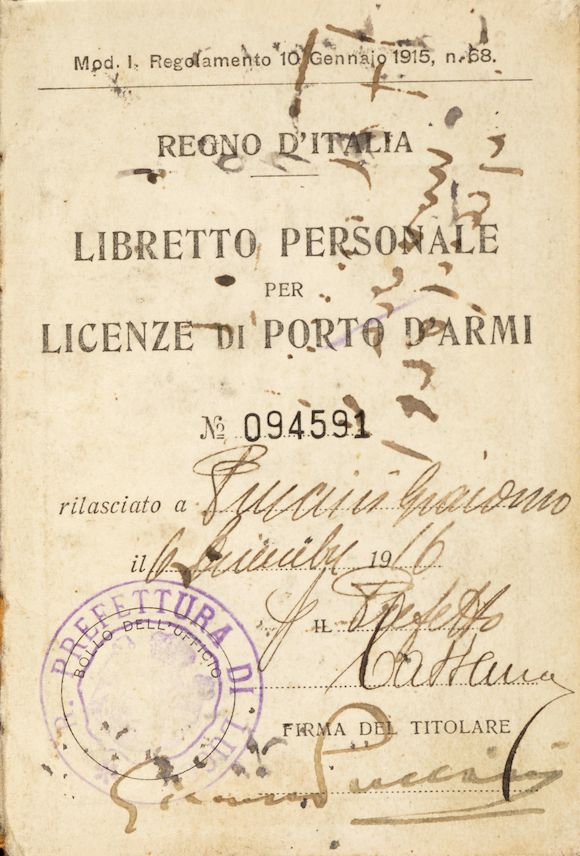 Mod. I. Regolamento 10 Gennaio 1915, n. 68.
REGNO D'ITALIA
LIBRETTO PERSONALE
PER
LICENZE DI PORTO D'ARMI
№ 094591
rilasciato a Puccini Giacomo
il 6 1916
IL Prefetto
R. PREFETTURA DI
BOLLO DELL'UFFICIO
FIRMA DEL TITOLARE
Giacomo Puccini